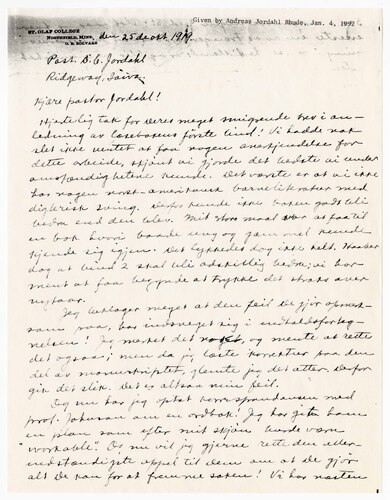 Given by Andreas Jordahl Rhude, Jan. 4, 1992
ST. OLAF COLLEGE
NORTHFIELD, MINN.
O. E. ROLVAAG
den 25de okt. 1919.
Past. D. C. Jordahl
Ridgeway, Iowa.
Kjære pastor Jordahl!
Hjertelig tak for Deres meget smigrende brev i an-
ledning av Læsebokens förste bind! Vi hadde nok
slet ikke ventet at faa nogen anerkjendelse for
dette arbeide, skjönt vi gjorde det bedste vi under
omstændighetene kunde. Det værste er at vi ikke
har nogen norsk-amerikansk barneliteratur med
digterisk sving. Derfor kunde ikke boken godt bli
bedre end den blev. Mit store maal var at faa til
en bok hvori baade ung og gammel kunde
kjende sig igjen. Det lykkedes dog ikke helt. Haaber
dog at bind 2 skal bli adskillig bedre; vi har
ment at faa begynde at trykke det straks over
nytaar.
Jeg beklager meget at den feil De gjör opmerk-
som paa, har indsneget sig i indholdsforteg-
nelsen! Jeg merket det og mente at rette
det ogsaa; men da jeg læste korrektur paa den
del av manuskriptet, glemte jeg det atter. Derfor
gik det slik. Det er altsaa min feil.
Og nu har jeg optat korrespondansen med
prof. Johnson om en ordbok! Jeg har git ham
en plan som efter mit skjön burde være
"workable". Og nu vil jeg gjerne rette den aller-
indstændigste appel til dem om at De gjör
alt De kan for at fremme saken! Vi har næsten